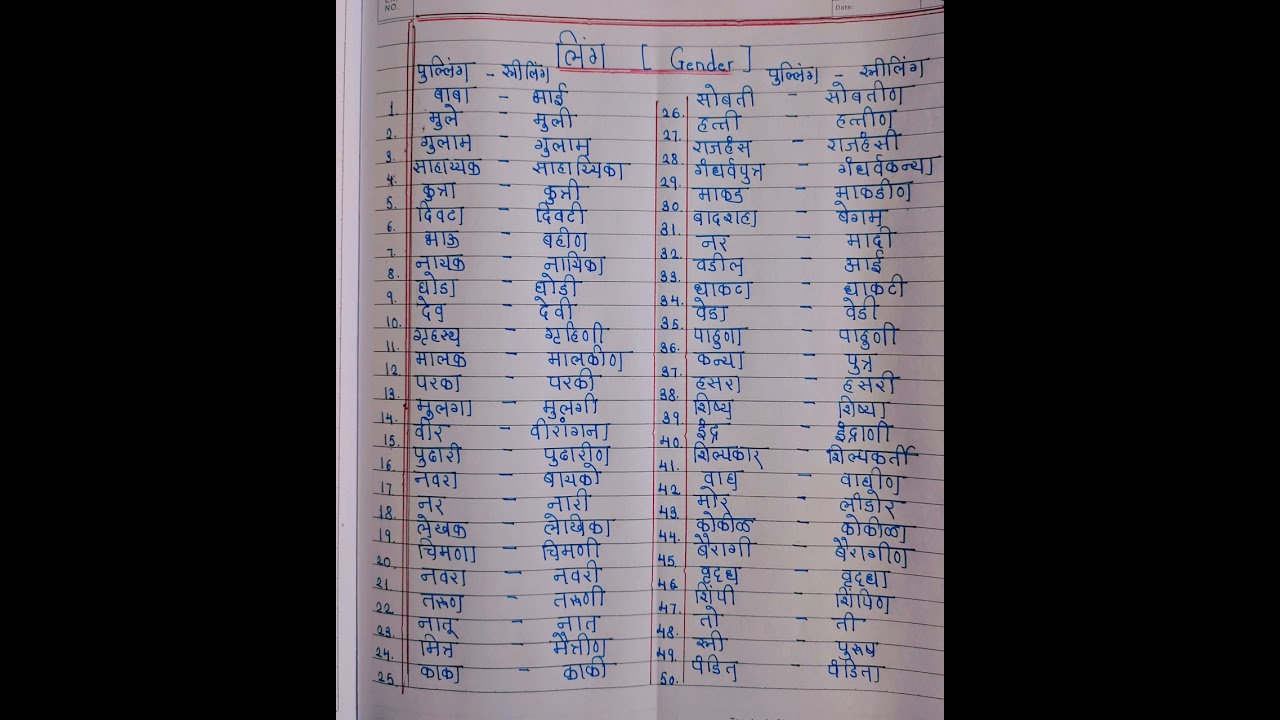 NO.
Date:
लिंग [ Gender ]
पुल्लिंग - स्त्रीलिंग
1. बाबा - आई
2. मुले - मुली
3. गुलाम - गुलाम
4. साहाय्यक - साहाय्यिका
5. कुत्रा - कुत्री
6. दिवटा - दिवटी
7. भाऊ - बहीण
8. नायक - नायिका
9. घोडा - घोडी
10. देव - देवी
11. गृहस्थ - गृहिणी
12. मालक - मालकीण
13. परका - परकी
14. मुलगा - मुलगी
15. वीर - वीरांगना
16. पुढारी - पुढारीण
17 नवरा - बायको
18. नर - नारी
19. लेखक - लेखिका
20. चिमणा - चिमणी
21 नवरा - नवरी
22 तरूण - तरूणी
23. नातू - नात
24. मित्र - मैत्रीण
25. काका - काकी
पुल्लिंग - स्त्रीलिंग
26. सोबती - सोबतीण
27. हत्ती - हत्तीण
28 राजहंस - राजहंसी
29. गंधर्वपुत्र - गंधर्वकन्या
30. माकड - माकडीण
31. बादशहा - बेगम
32. नर - मादी
33. वडील - आई
34. धाकटा - धाकटी
35. वेडा - वेडी
36. पाहुणा - पाहुणी
37. कन्या - पुत्र
38. हसरा - हसरी
39. शिष्य - शिष्या
40. इंद्र - इंद्राणी
41. शिल्पकार - शिल्पकर्ती
42 वाघ - वाघीण
43. मोर - लांडोर
44. कोकीळ - कोकीळा
45. बैरागी - बैरागीण
46. वृद्ध - वृद्धा
47. शिंपी - शिंपिण
48. तो - ती
49. स्त्री - पुरूष
50. पंडित - पंडिता